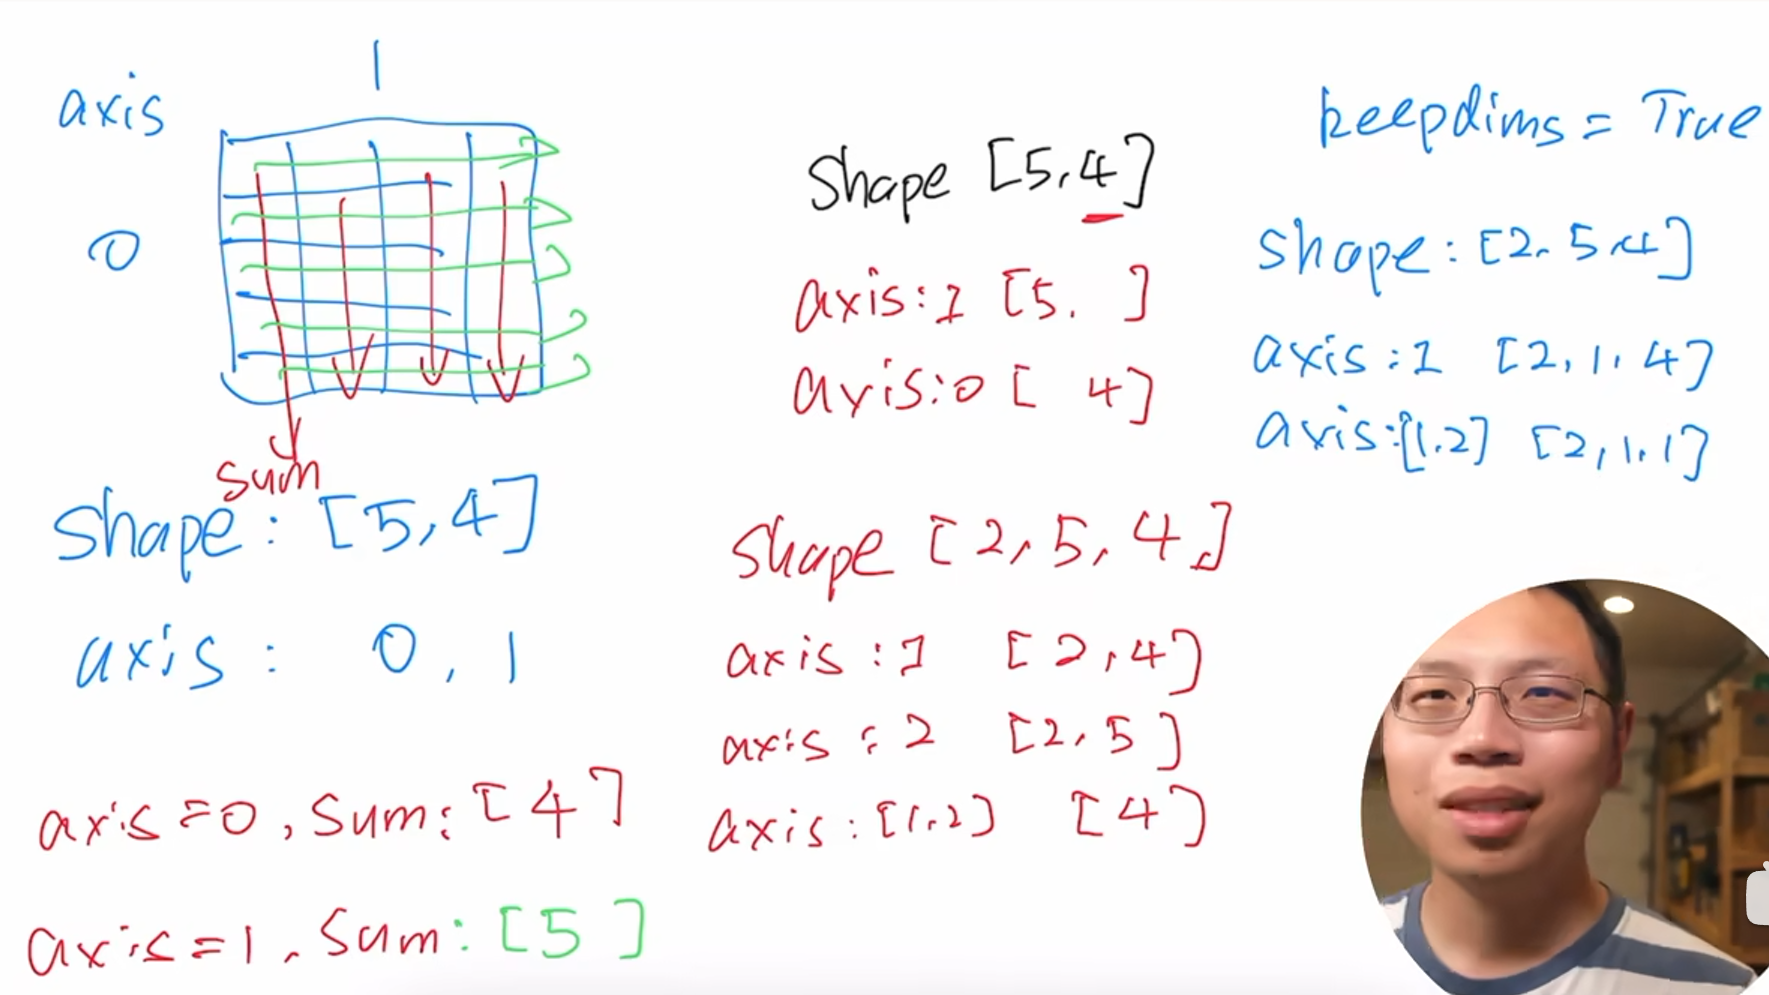 axis
1
0
sum
shape: [5,4]
axis: 0, 1
axis=0, sum: [4]
axis=1, sum: [5]
shape [5,4]
axis:1 [5. ]
axis:0 [ 4]
shape [2,5,4,]
axis:1 [2,4]
axis:2 [2,5]
axis:[1,2] [4]
keepdims=True
shape:[2,5,4]
axis:1 [2,1,4]
axis:[1,2] [2,1,1]